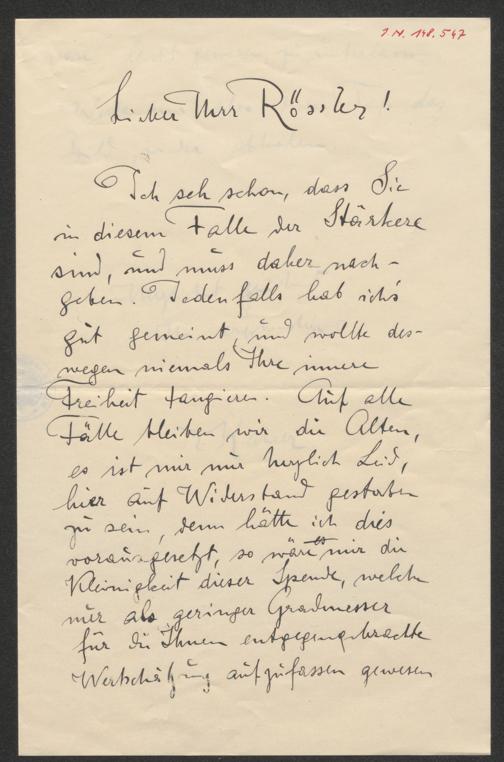 J.N. 148.547
Lieber Herr Rössler!
Ich seh schon, dass Sie
in diesem Falle der Stärkere
sind, und muss daher nach-
geben. Jedenfalls hab ich's
gut gemeint, und wollte des-
wegen niemals Ihre innere
Freiheit tangieren. Auf alle
Fälle bleiben wir die Alten,
es ist mir nur herzlich Leid,
hier auf Widerstand gestoßen
zu sein, denn hätte ich dies
vorausgesetzt, so wäre mir die
Kleinigkeit dieser Spende, welche
nur als geringer Gradmesser
für die Ihnen entgegengebrachte
Wertschätzung aufzufassen gewesen